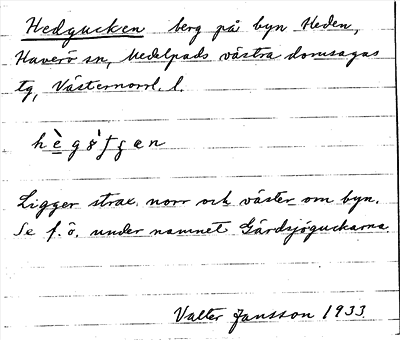 Hedgucken berg på byn Heden,
Haverö sn, Medelpads västra domsagas
tg, Västernorrl. l.
Ligger strax norr och väster om byn.
Se f. ö. under namnet Gärdsjöguckarna.
Valter Jansson 1933